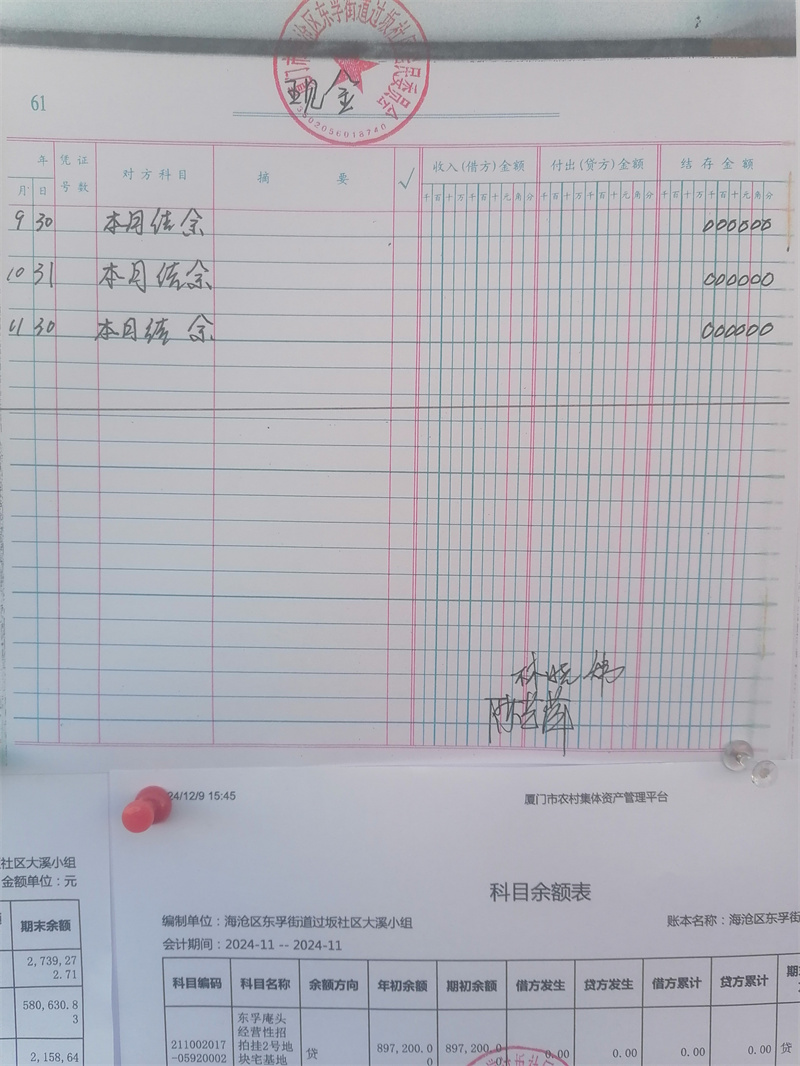 61
现金
3502056018740
年 凭证 对方科目 摘要 √ 收入(借方)金额 付出(贷方)金额 结存金额
月 日 号数 千百十万千百十元角分 千百十万千百十元角分 千百十万千百十元角分
9 30 本月结余 000000
10 31 本月结余 000000
11 30 本月结余 000000
林晓伟
24/12/9 15:45 厦门市农村集体资产管理平台
社区大溪小组
金额单位:元
期末余额
2,739,27
2.71
580,630.8
3
2,158,64
科目余额表
编制单位:海沧区东孚街道过坂社区大溪小组 账本名称:海沧区东孚街
会计期间:2024-11 -- 2024-11
科目编码 科目名称 余额方向 年初余额 期初余额 借方发生 贷方发生 借方累计 贷方累计 期
211002017
-05920002
东孚庵头
经营性招
拍挂2号地
块宅基地
贷 897,200.0
0 897,200.0
0 0.00 0.00 0.00 0.00 贷